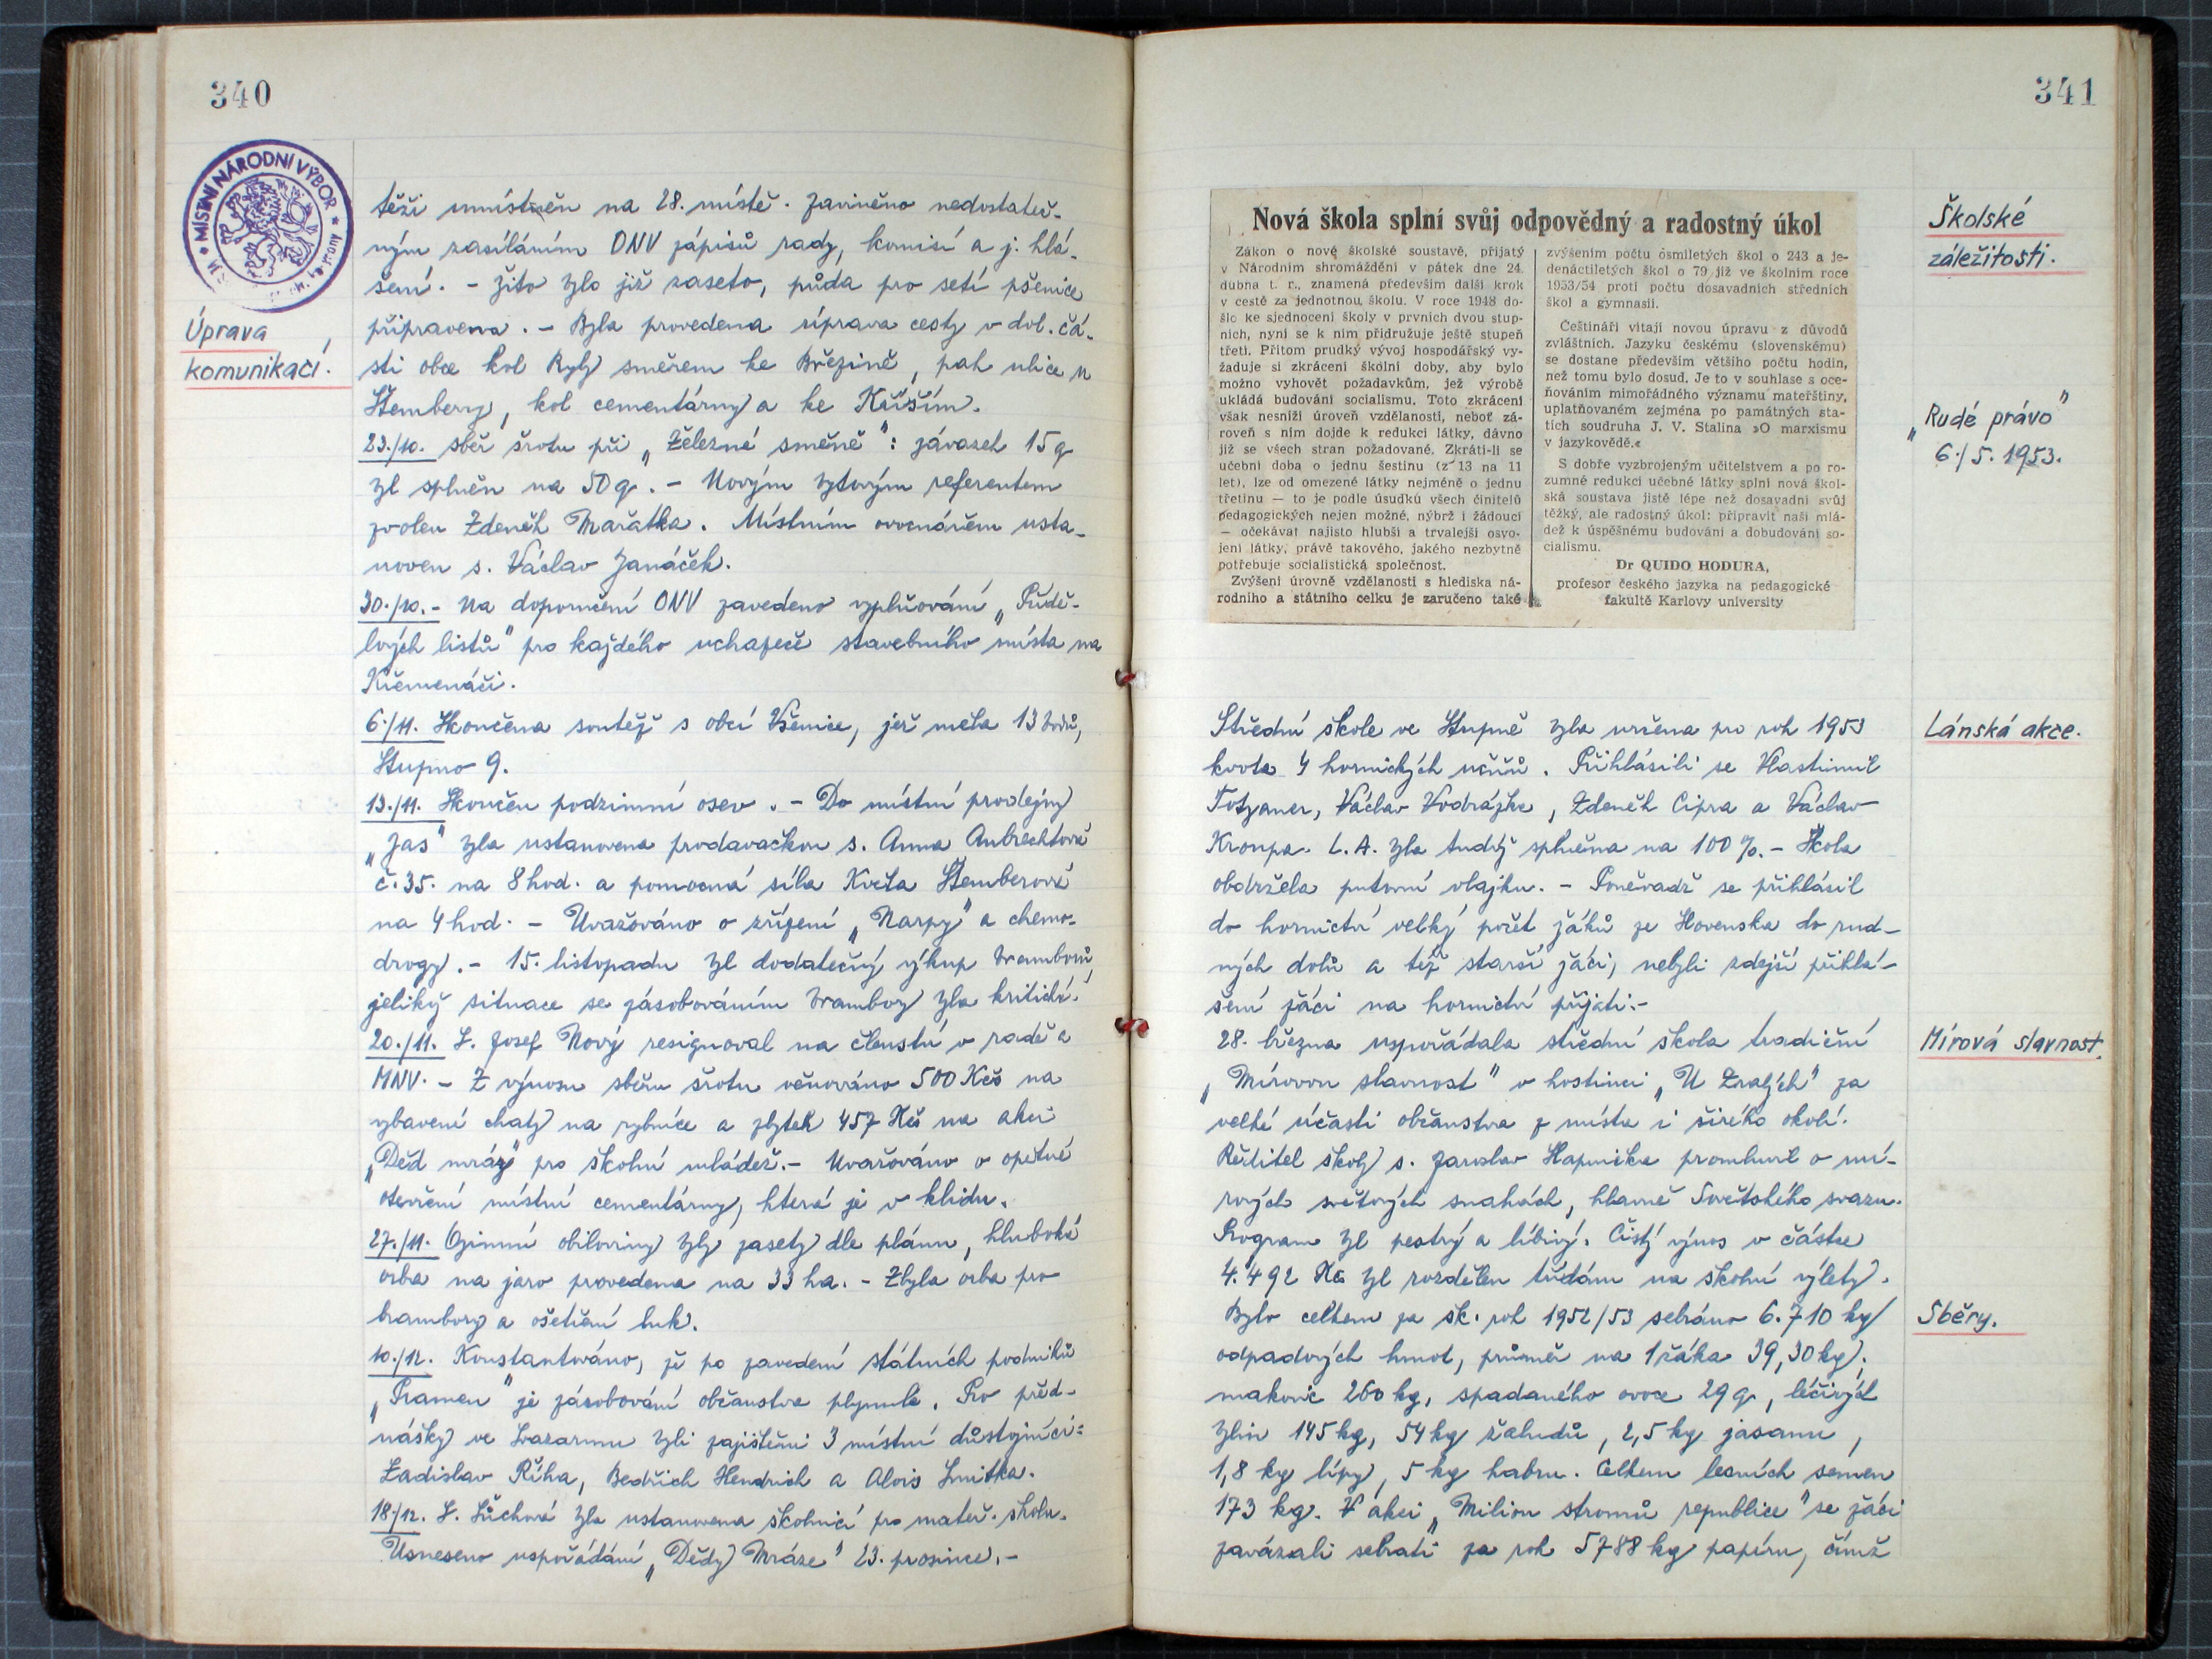 340
MÍSTNÍ NÁRODNÍ VÝBOR
Úprava
komunikací.
těži umístněn na 28. místě. Zaviněno nedostateč-
ným zasíláním ONV zápisů rady, komisí a j. hlá-
šení. - Žito bylo již zaseto, půda pro setí pšenice
připravena. - Byla provedena úprava cesty v dol. čá-
sti obce kol Ryly směrem ke Březině, pak ulice u
Štembery, kol cementárny a ke Křížím.
23./10. sběr šrotu při „Železné směně": závazek 15 q
byl splněn na 50 q. - Novým bytovým referentem
zvolen Zdeněk Mařatka. Místním ovocnářem usta-
noven s. Václav Janáček.
30./10. - Na doporučení ONV zavedeno vyplňování „Přídě-
lových listů" pro každého uchazeče stavebního místa na
Křemenáči.
6./11. Skončena soutěž s obcí Všenice, jež měla 13 bodů,
Stupno 9.
13./11. Skončen podzimní osev. - Do místní prodejny
„Jas" byla ustanovena prodavačkou s. Anna Aubrechtová
č. 35. na 8 hod. a pomocná síla Květa Štemberová
na 4 hod. - Uvažováno o zřízení „Narpy" a chemo-
drogy. - 15. listopadu byl dodatečný výkup bramborů,
jelikož situace se zásobováním brambory byla kritická.
20./11. S. Josef Nový resignoval na členství v radě a
MNV. - Z výnosu sběru šrotu věnováno 500 Kčs na
vybavení chaty na rybníce a zbytek 457 Kčs na akci
„Děd mráz" pro školní mládež. - Uvažováno o opětné
otevření místní cementárny, která je v klidu.
27./11. Ozimní obiloviny byly zasety dle plánu, hluboká
orba na jaro provedena na 33 ha. - Zbyla orba pro
brambory a ošetření luk.
10./12. Konstatováno, že po zavedení státních podniků
„Pramen" je zásobování občanstva plynulé. Pro před-
nášky ve Svazarmu byli zajištěni 3 místní důstojníci:
Ladislav Říha, Bedřich Hendrich a Alois Smitka.
18./12. S. byla ustanovena školnicí pro mateř. školu.
Usneseno uspořádání „Dědy Mráze" 23. prosince. -
341
Nová škola splní svůj odpovědný a radostný úkol
Zákon o nové školské soustavě, přijatý
v Národním shromáždění v pátek dne 24.
dubna t. r., znamená především další krok
v cestě za jednotnou školu. V roce 1948 do-
šlo ke sjednocení školy v prvních dvou stup-
ních, nyní se k nim přidružuje ještě stupeň
třetí. Přitom prudký vývoj hospodářský vy-
žaduje si zkrácení školní doby, aby bylo
možno vyhovět požadavkům, jež výrobě
ukládá budování socialismu. Toto zkrácení
však nesníží úroveň vzdělanosti, neboť zá-
roveň s ním dojde k redukci látky, dávno
již se všech stran požadované. Zkrátí-li se
učební doba o jednu šestinu (z 13 na 11
let), lze od omezené látky nejméně o jednu
třetinu — to je podle úsudků všech činitelů
pedagogických nejen možné, nýbrž i žádoucí
— očekávat najisto hlubší a trvalejší osvo-
jení látky, právě takového, jakého nezbytně
potřebuje socialistická společnost.
Zvýšení úrovně vzdělanosti s hlediska ná-
rodního a státního celku je zaručeno také
zvýšením počtu osmiletých škol o 243 a je-
denáctiletých škol o 79 již ve školním roce
1953/54 proti počtu dosavadních středních
škol a gymnasií.
Češtináři vítají novou úpravu z důvodů
zvláštních. Jazyku českému (slovenskému)
se dostane především většího počtu hodin,
než tomu bylo dosud. Je to v souhlase s oce-
ňováním mimořádného významu mateřštiny,
uplatňovaném zejména po památných sta-
tích soudruha J. V. Stalina »O marxismu
v jazykovědě.«
S dobře vyzbrojeným učitelstvem a po ro-
zumné redukci učebné látky splní nová škol-
ská soustava jistě lépe než dosavadní svůj
těžký, ale radostný úkol: připravit naši mlá-
dež k úspěšnému budování a dobudování so-
cialismu.
Dr QUIDO HODURA,
profesor českého jazyka na pedagogické
fakultě Karlovy university
Školské
záležitosti.
„Rudé právo"
6./5. 1953.
Střední škole ve Stupně byla určena pro rok 1953
kvota 4 hornických učňů. Přihlásili se Vlastimil
Totzauer, Václav Vodrážka, Zdeněk Cipra a Václav
Kroupa. L. A. byla tudíž splněna na 100 %. - Škola
obdržela putovní vlajku. - Poněvadž se přihlásil
do hornictví velký počet žáků ze Slovenska do rud-
ných dolů a též starší žáci, nebyli zdejší přihlá-
šení žáci na hornictví přijati. -
Lánská akce.
28. března uspořádala střední škola tradiční
„Mírovou slavnost" v hostinci „U Zralých" za
velké účasti občanstva z místa i širého okolí.
Ředitel školy s. Jaroslav Hapnička promluvil o mí-
rových světových snahách, hlavně Sovětského svazu.
Program byl pestrý a líbivý. Čistý výnos v částce
4.492 Kčs byl rozdělen třídám na školní výlety.
Mírová slavnost.
Bylo celkem za šk. rok 1952/53 sebráno 6.710 kg
odpadových hmot, průměr na 1 žáka 39,30 kg),
makovic 260 kg, spadaného ovoce 29 q, léčivých
bylin 145 kg, 54 kg žaludů, 2,5 kg jasanu,
1,8 kg lípy, 5 kg habru. Celkem lesních semen
173 kg. V akci „Milion stromů republice" se žáci
zavázali sebrati za rok 5788 kg papíru, čímž
Sběry.